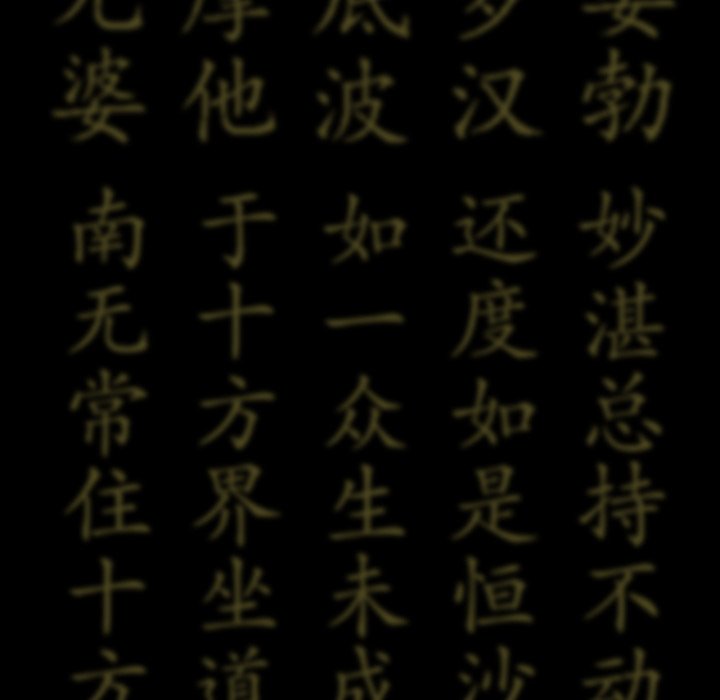 勃
汉
底波
摩他
婆
妙湛总持不动
还度如是恒沙
如一众生未成
于十方界坐道
南无常住十方